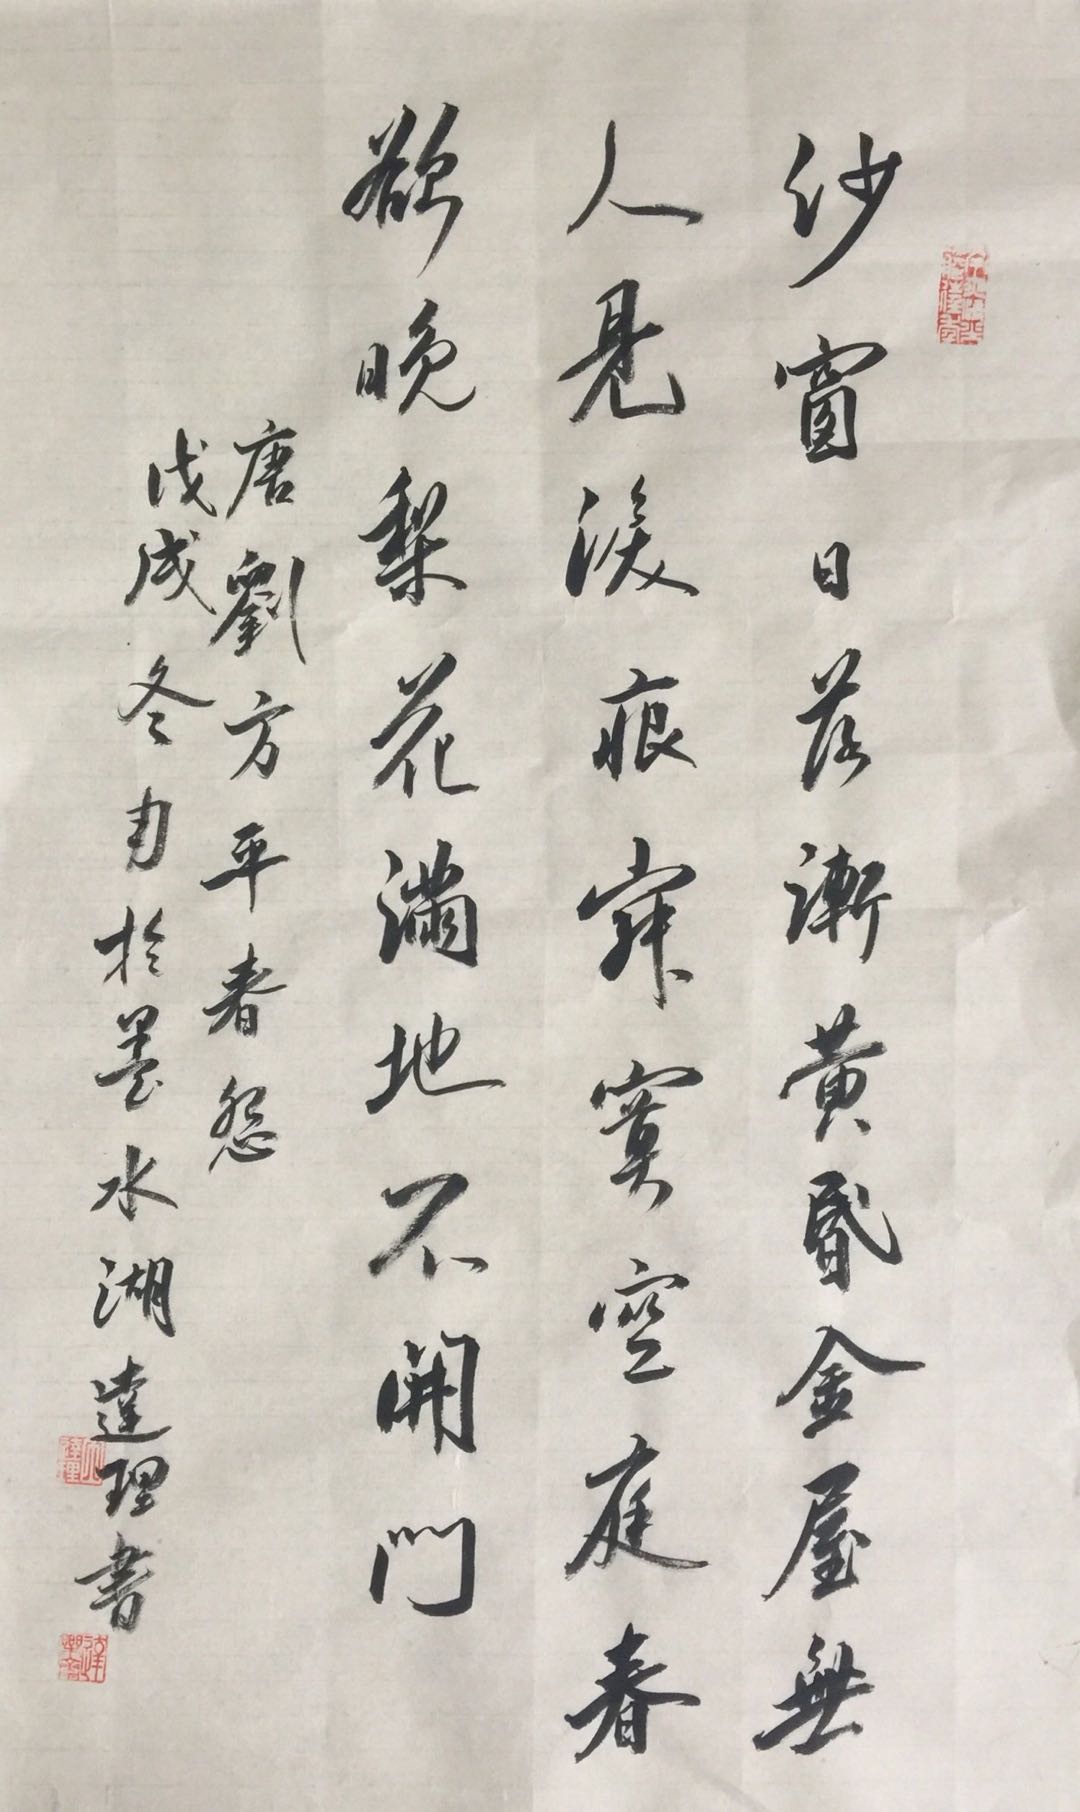 紗窗日落漸黃昏金屋無
人見淚痕寂寞空庭春
欲晚梨花滿地不開門
唐劉方平春怨
戊戌冬月於墨水湖達理書